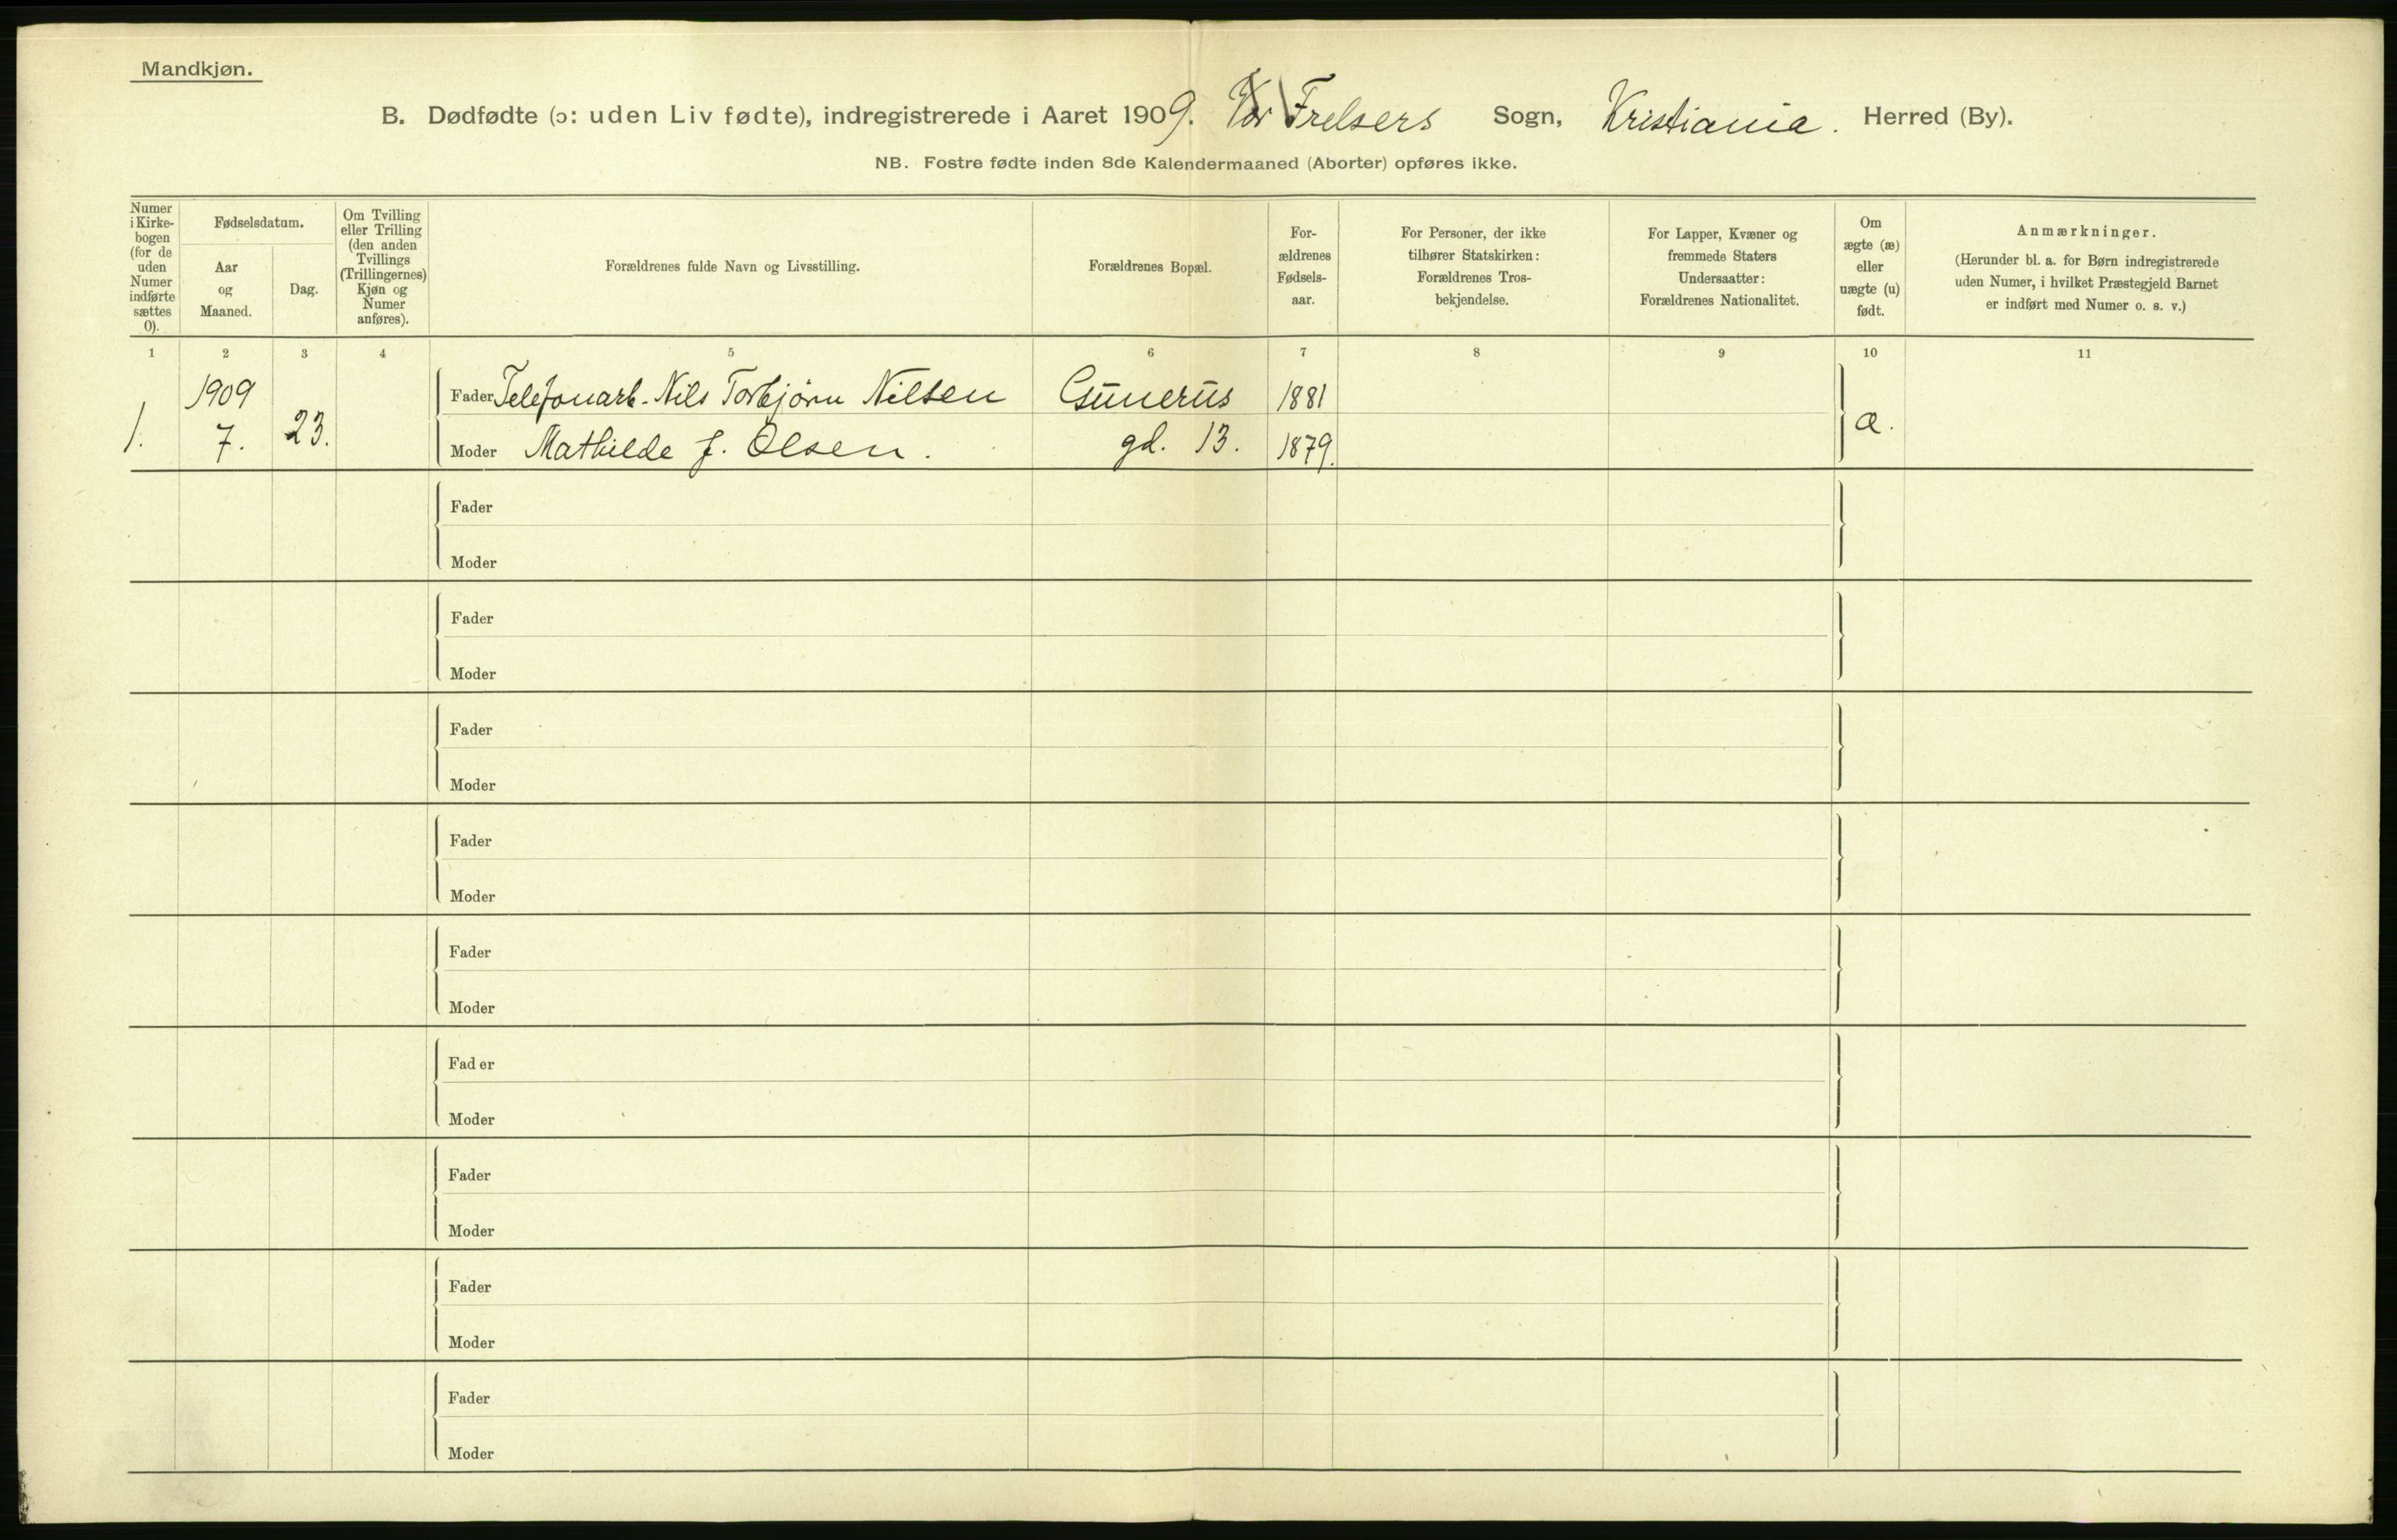 Mandkjøn.
B. Dødfødte (ɔ: uden Liv fødte), indregistrerede i Aaret 1909. Vor Frelsers Sogn, Kristiania. Herred (By).
NB. Fostre fødte inden 8de Kalendermaaned (Aborter) opføres ikke.
Numer
i Kirke-
bogen
(for de
uden
Numer
indførte
sættes
0).
Fødselsdatum.
Aar
og
Maaned.
Dag.
Om Tvilling
eller Trilling
(den anden
Tvillings
(Trillingernes)
Kjøn og
Numer
anføres).
Forældrenes fulde Navn og Livsstilling.
Forældrenes Bopæl.
For-
ældrenes
Fødsels-
aar.
For Personer, der ikke
tilhører Statskirken:
Forældrenes Tros-
bekjendelse.
For Lapper, Kvæner og
fremmede Staters
Undersaatter:
Forældrenes Nationalitet.
Om
ægte (æ)
eller
uægte (u)
født.
Anmærkninger.
(Herunder bl. a. for Børn indregistrerede
uden Numer, i hvilket Præstegjeld Barnet
er indført med Numer o. s. v.)
1 2 3 4 5 6 7 8 9 10 11
1909 Fader Telefonarb. Nils Torbjørn Nilsen Gunerus 1881
1. 7. 23. Moder Mathilde J. Olsen. gd. 13. 1879. æ.
Fader
Moder
Fader
Moder
Fader
Moder
Fader
Moder
Fader
Moder
Fader
Moder
Fader
Moder
Fader
Moder
Fader
Moder